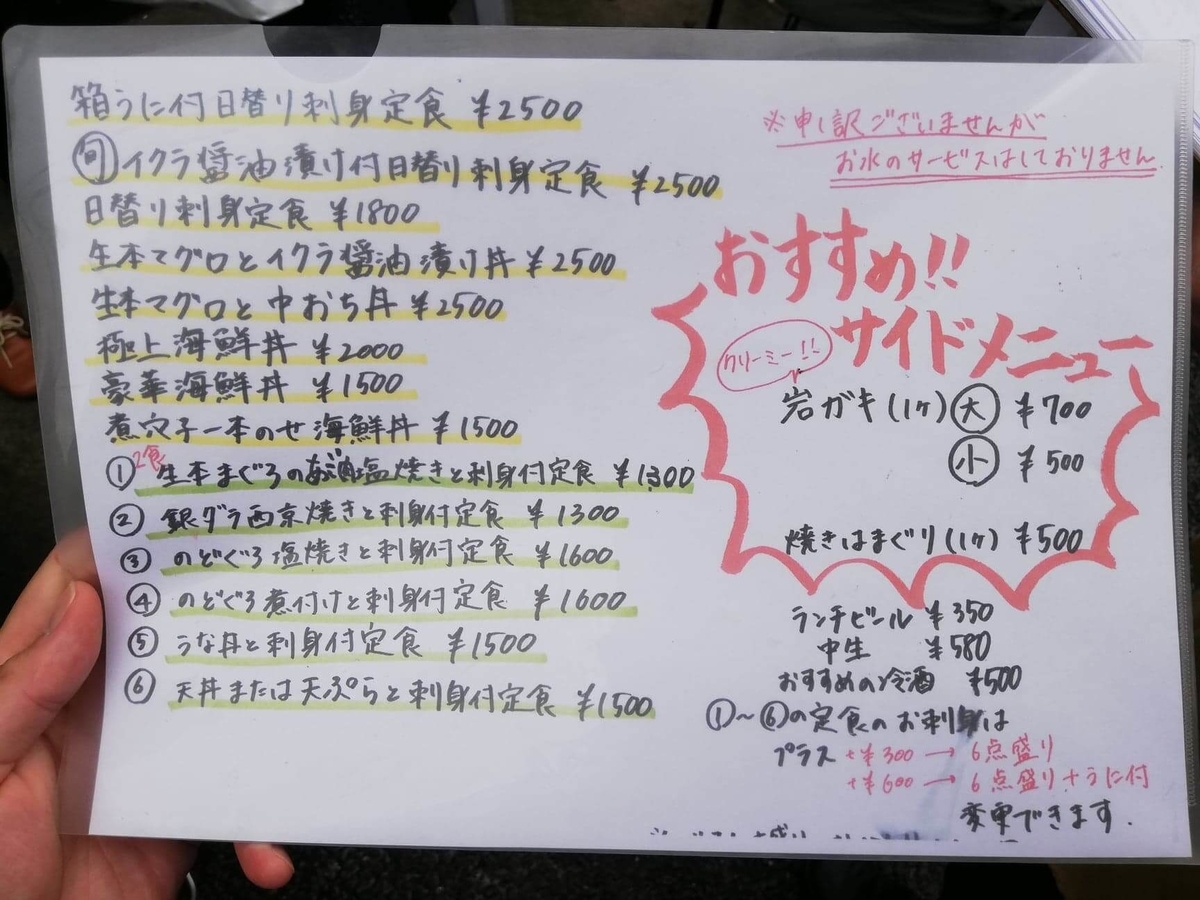 箱うに付日替り刺身定食 ¥2500
旬イクラ醤油漬け付日替り刺身定食 ¥2500
日替り刺身定食 ¥1800
生本マグロとイクラ醤油漬け丼 ¥2500
生本マグロと中おち丼 ¥2500
極上海鮮丼 ¥2000
豪華海鮮丼 ¥1500
煮穴子一本のせ海鮮丼 ¥1500
2食
① 生本まぐろの塩焼きと刺身付定食 ¥1300
② 銀ダラ西京焼きと刺身付定食 ¥1300
③ のどぐろ塩焼きと刺身付定食 ¥1600
④ のどぐろ煮付けと刺身付定食 ¥1600
⑤ うな丼と刺身付定食 ¥1500
⑥ 天丼または天ぷらと刺身付定食 ¥1500
※申し訳ございませんが
お水のサービスはしておりません
おすすめ!!
サイドメニュー
クリーミー!!
岩ガキ(1ヶ) 大 ¥700
小 ¥500
焼きはまぐり(1ヶ) ¥500
ランチビール ¥350
中生 ¥580
おすすめの冷酒 ¥500
①〜⑥の定食のお刺身は
プラス +¥300 → 6点盛り
+¥600 → 6点盛り+うに付
変更できます.